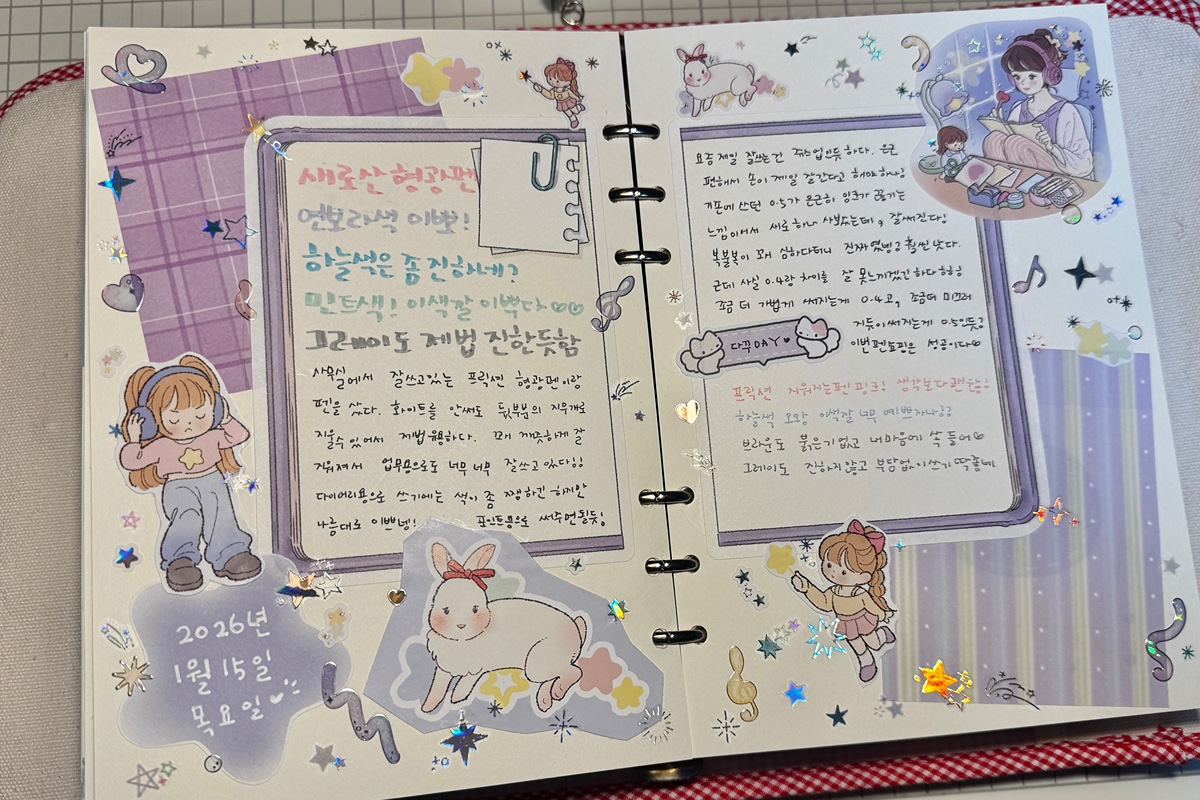 새로산 형광펜
연보라색 이뽀!
하늘색은 좀 진하네?
민트색! 이색깔 이쁘다♡♡
그레이도 제법 진한듯함
사무실에서 잘쓰고있는 프릭션 형광펜이랑
펜을 샀다. 화이트를 안써도 뒷부분의 지우개로
지울수 있어서 제법 유용하다. 꽤 깨끗하게 잘
지워져서 업무용으로도 너무 너무 잘쓰고있다!!
다이어리용으로 쓰기에는 색이 좀 쨍하긴 하지만
나름대로 이쁘넹! 포인트용으로 써주면될듯!
2026년
1월 15일
목요일
요즘 제일 잘쓰는건 쥬스업인듯하다. 은근
편해서 손이 제일 잘간다고 해야하나?
기존에 쓰던 0.5가 은근히 잉크가 끊기는
느낌이어서 새로 하나 사보았는데, 잘써진다!
복불복이 꽤 심하다더니 진짜였넹? 훨씬 낫다.
근데 사실 0.4랑 차이를 잘 못느끼겠긴하다
조금 더 가볍게 써지는게 0.4고, 조금더 미끄러
지듯이 써지는게 0.5인듯?
이번펜쇼핑은 성공이다♡
다꾸DAY♥
프릭션 지워지는펜 핑크! 생각보다괜찮넹!
하늘색 오왕 이색깔 너무 예쁘자나??
브라운도 붉은기없고 내마음에 쏙 들어♡
그레이도 진하지않고 부담없이쓰기 딱좋네